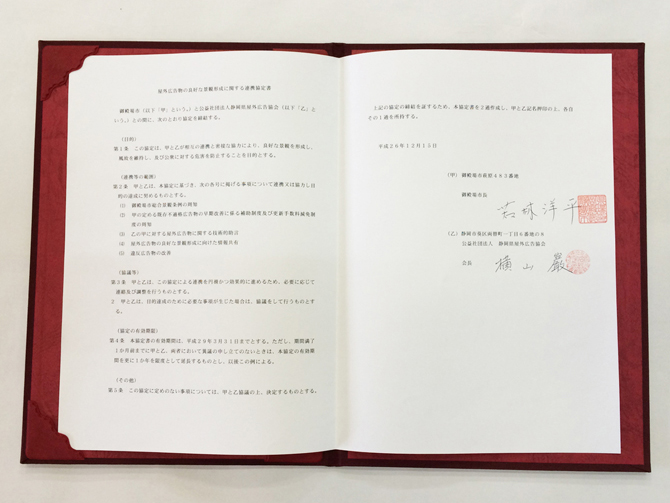 屋外広告物の良好な景観形成に関する連携協定書
御殿場市（以下「甲」という。）と公益社団法人静岡県屋外広告協会（以下「乙」と
いう。）との間に、次のとおり協定を締結する。
（目的）
第１条　この協定は、甲と乙が相互の連携と密接な協力により、良好な景観を形成し、
風致を維持し、及び公衆に対する危害を防止することを目的とする。
（連携等の範囲）
第２条　甲と乙は、本協定に基づき、次の各号に掲げる事項について連携又は協力し目
的の達成に努めるものとする。
(1)　御殿場市総合景観条例の周知
(2)　甲の定める既存不適格広告物の早期改善に係る補助制度及び更新手数料減免制
度の周知
(3)　乙の甲に対する屋外広告物に関する技術的助言
(4)　屋外広告物の良好な景観形成に向けた情報共有
(5)　違反広告物の改善
（協議等）
第３条　甲と乙は、この協定による連携を円滑かつ効果的に進めるため、必要に応じて
連絡及び調整を行うものとする。
２　甲と乙は、目的達成のために必要な事項が生じた場合は、協議をして行うものとす
る。
（協定の有効期間）
第４条　本協定書の有効期間は、平成２９年３月３１日までとする。ただし、期間満了
１か月前までに甲と乙、両者において異議の申し立てのないときは、本協定の有効期
間を更に１か年を限度として延長するものとし、以後この例による。
（その他）
第５条　この協定に定めのない事項については、甲と乙協議の上、決定するものとする。
上記の協定の締結を証するため、本協定書を２通作成し、甲と乙記名押印の上、各自
その１通を所持する。
平成２８年１２月１５日
（甲）御殿場市萩原４８３番地
御殿場市長
若林洋平
（乙）静岡市葵区両替町一丁目６番地の８
公益社団法人　静岡県屋外広告協会
会長
横山　巖